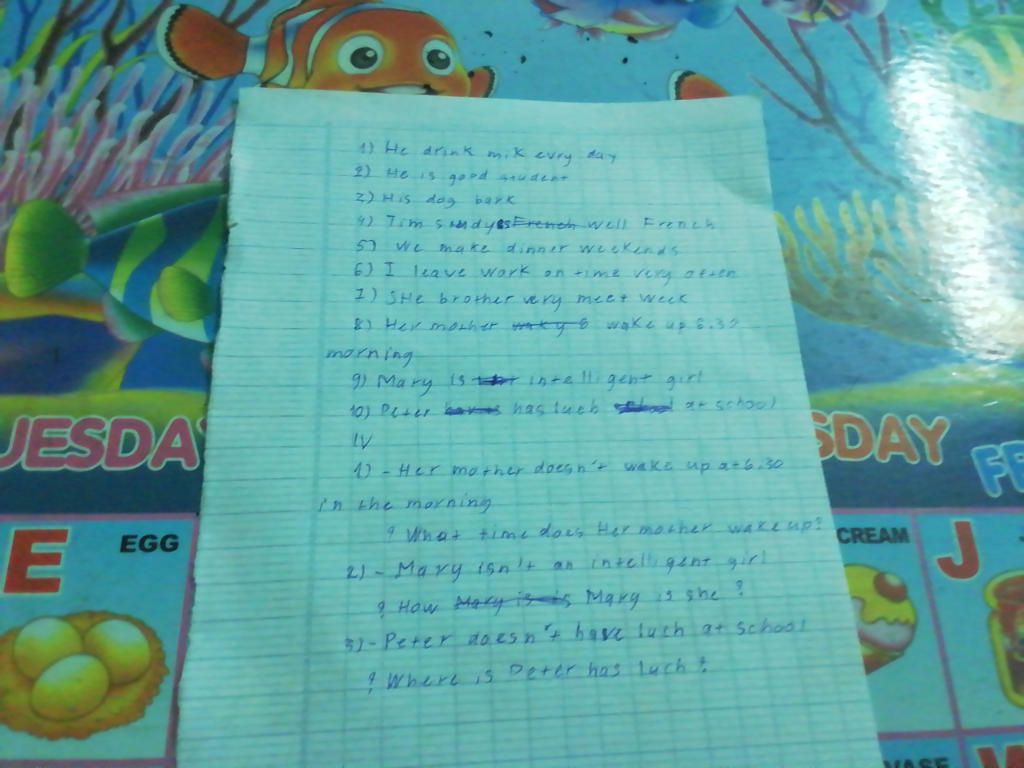 1) He drink mik evry day
2) He is good student
3) His dog bark
4) Tim sudyes French well French
5) We make dinner weekends
6) I leave work on time very often
7) SHe brother very meet week
8) Her mother waky 6 wake up 6.30
morning
9) Mary is intelligent girl
10) Peter has luch at school
IV
UESDAY
SDAY
FR
1) - Her mother doesn't wake up at 6.30
in the morning
? What time does Her mother wake up?
E
EGG
CREAM
J
2) - Mary isn't an intelligent girl
? How Mary is is Mary is she ?
3) - Peter doesn't have luch at school
? Where is Peter has luch ?
VASE
W